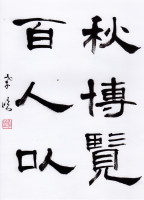 秋博覧
百人以